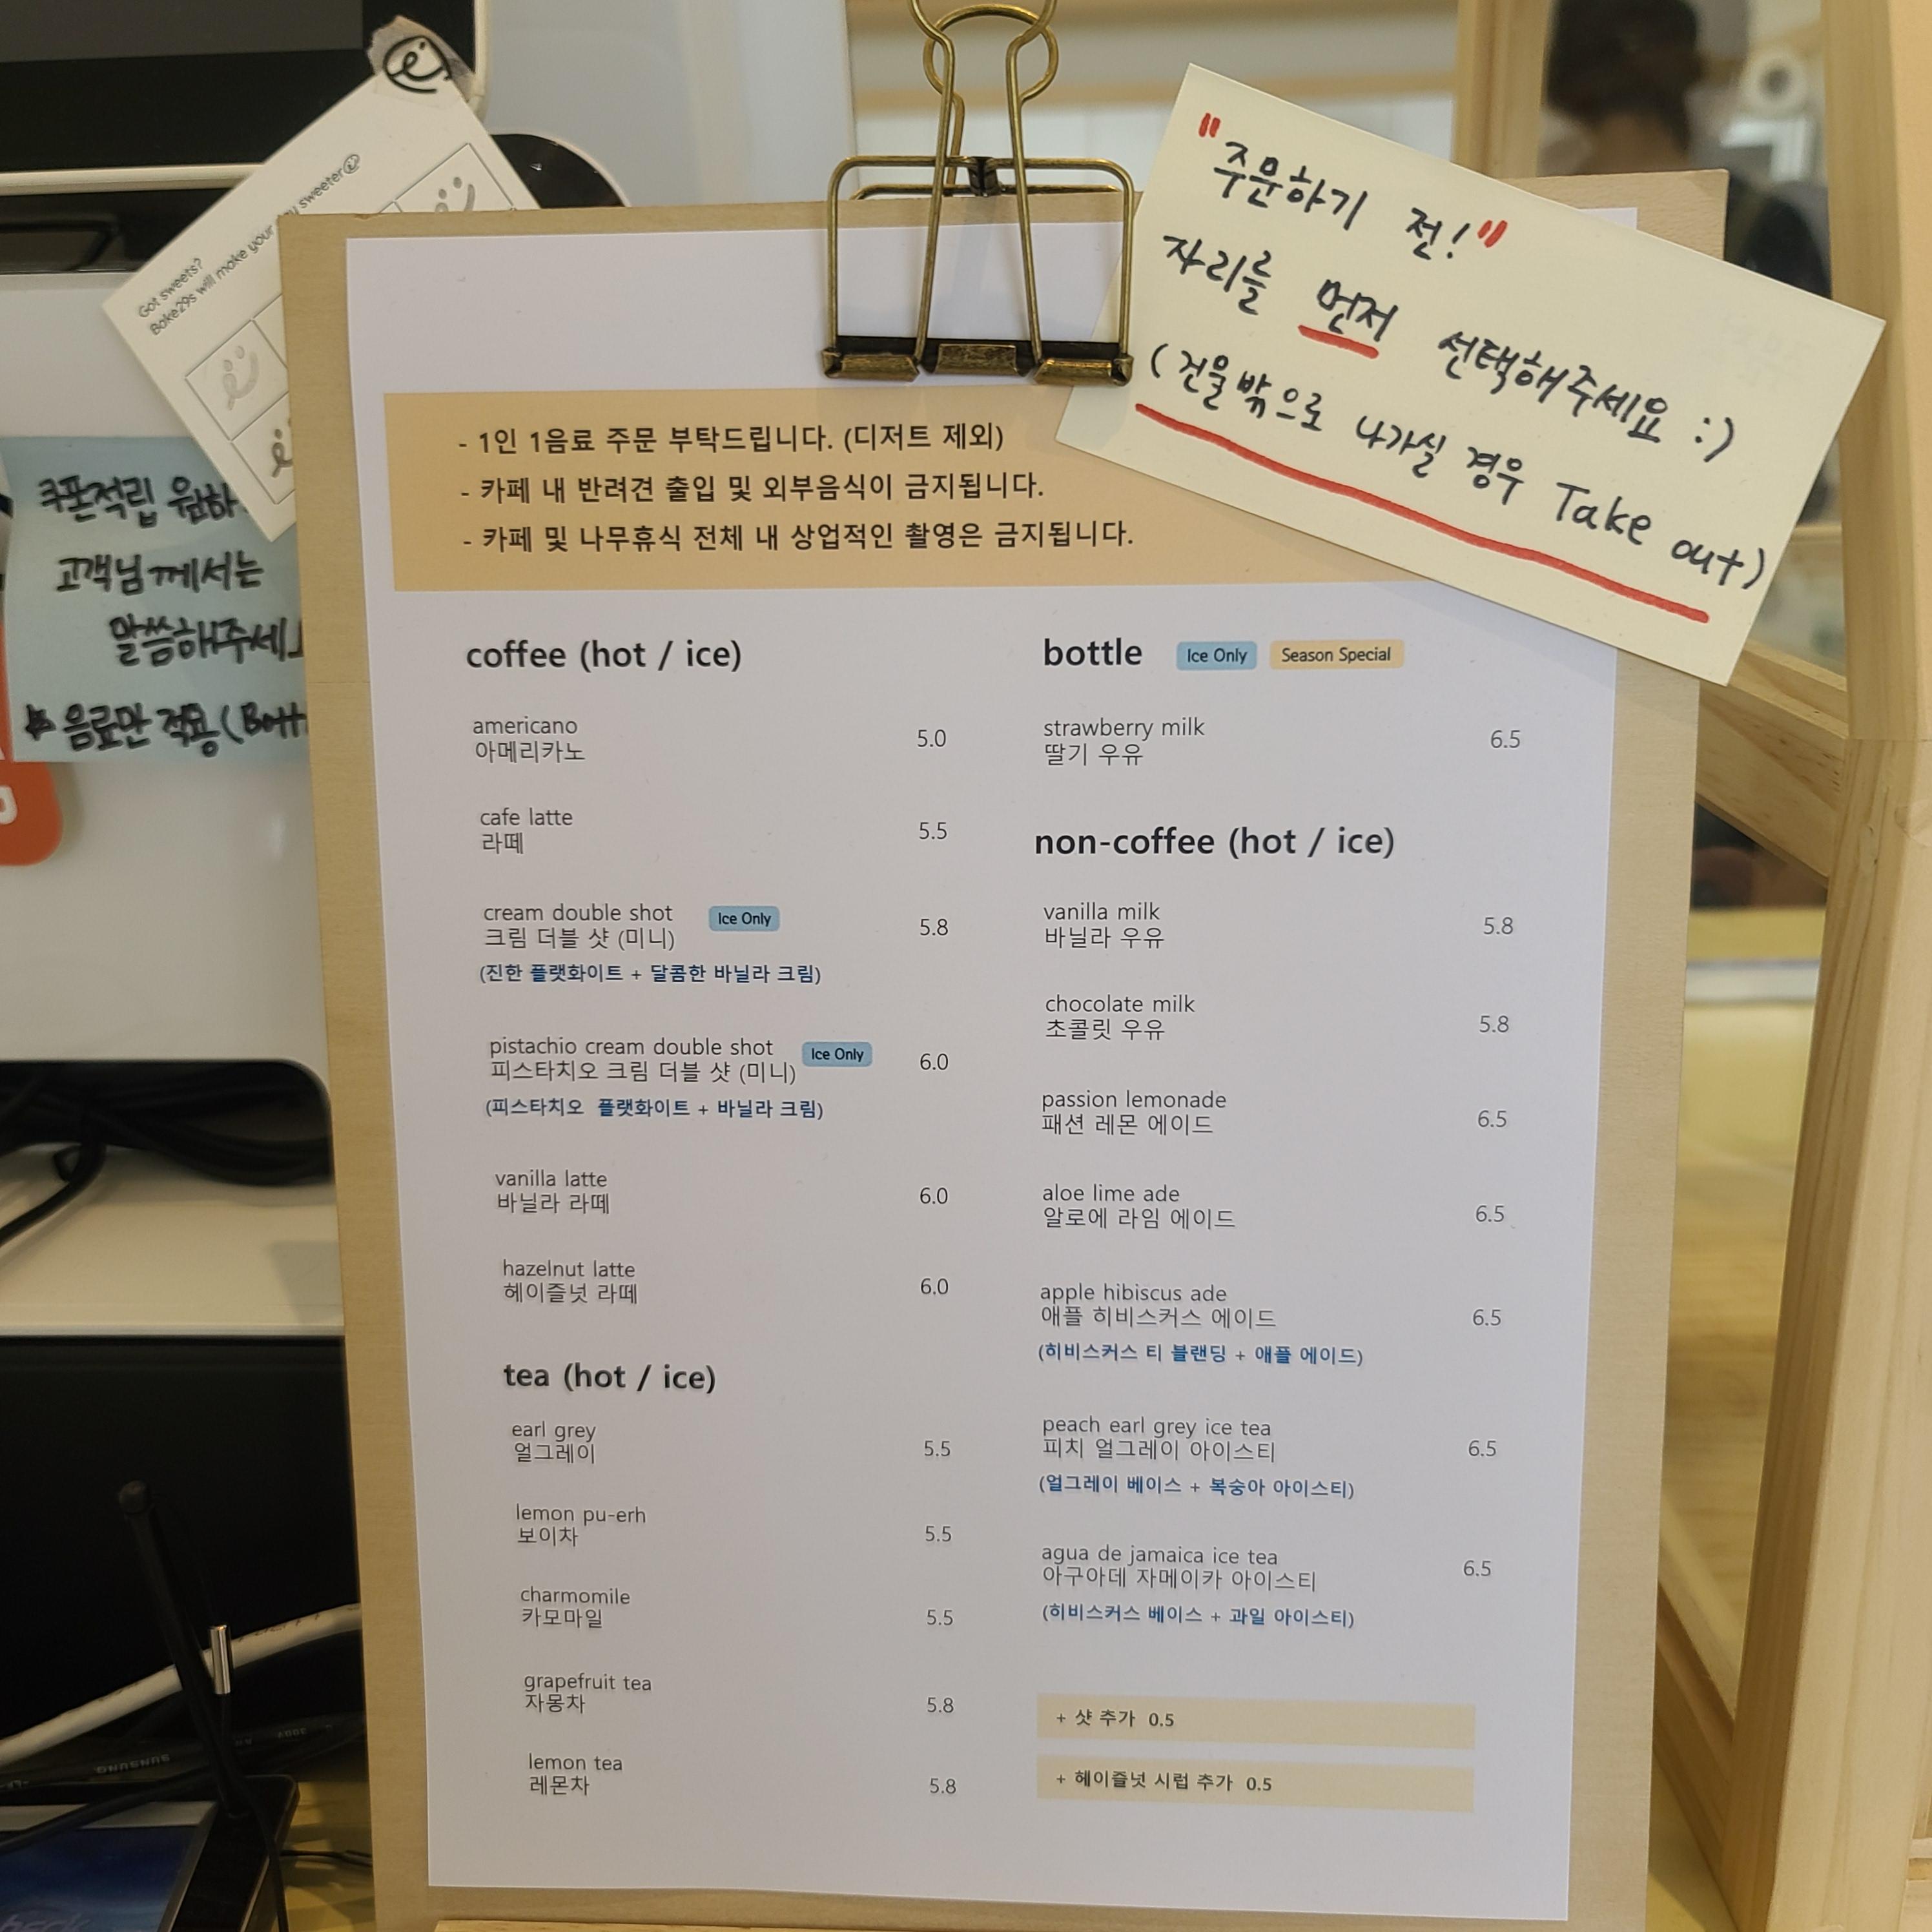 Got sweets?
Bake29s will make your sweeter
쿠폰적립 원하
고객님께서는
말씀해주세
음료만 적용(Bott
"주문하기 전!"
자리를 먼저 선택해주세요 :)
(건물밖으로 나가실 경우 Take out)
- 1인 1음료 주문 부탁드립니다. (디저트 제외)
- 카페 내 반려견 출입 및 외부음식이 금지됩니다.
- 카페 및 나무휴식 전체 내 상업적인 촬영은 금지됩니다.
coffee (hot / ice)
americano
아메리카노 5.0
cafe latte
라떼 5.5
cream double shot Ice Only
크림 더블 샷 (미니) 5.8
(진한 플랫화이트 + 달콤한 바닐라 크림)
pistachio cream double shot Ice Only
피스타치오 크림 더블 샷 (미니) 6.0
(피스타치오 플랫화이트 + 바닐라 크림)
vanilla latte
바닐라 라떼 6.0
hazelnut latte
헤이즐넛 라떼 6.0
tea (hot / ice)
earl grey
얼그레이 5.5
lemon pu-erh
보이차 5.5
charmomile
카모마일 5.5
grapefruit tea
자몽차 5.8
lemon tea
레몬차 5.8
bottle Ice Only Season Special
strawberry milk
딸기 우유 6.5
non-coffee (hot / ice)
vanilla milk
바닐라 우유 5.8
chocolate milk
초콜릿 우유 5.8
passion lemonade
패션 레몬 에이드 6.5
aloe lime ade
알로에 라임 에이드 6.5
apple hibiscus ade
애플 히비스커스 에이드 6.5
(히비스커스 티 블랜딩 + 애플 에이드)
peach earl grey ice tea
피치 얼그레이 아이스티 6.5
(얼그레이 베이스 + 복숭아 아이스티)
agua de jamaica ice tea
아구아데 자메이카 아이스티 6.5
(히비스커스 베이스 + 과일 아이스티)
+ 샷 추가 0.5
+ 헤이즐넛 시럽 추가 0.5